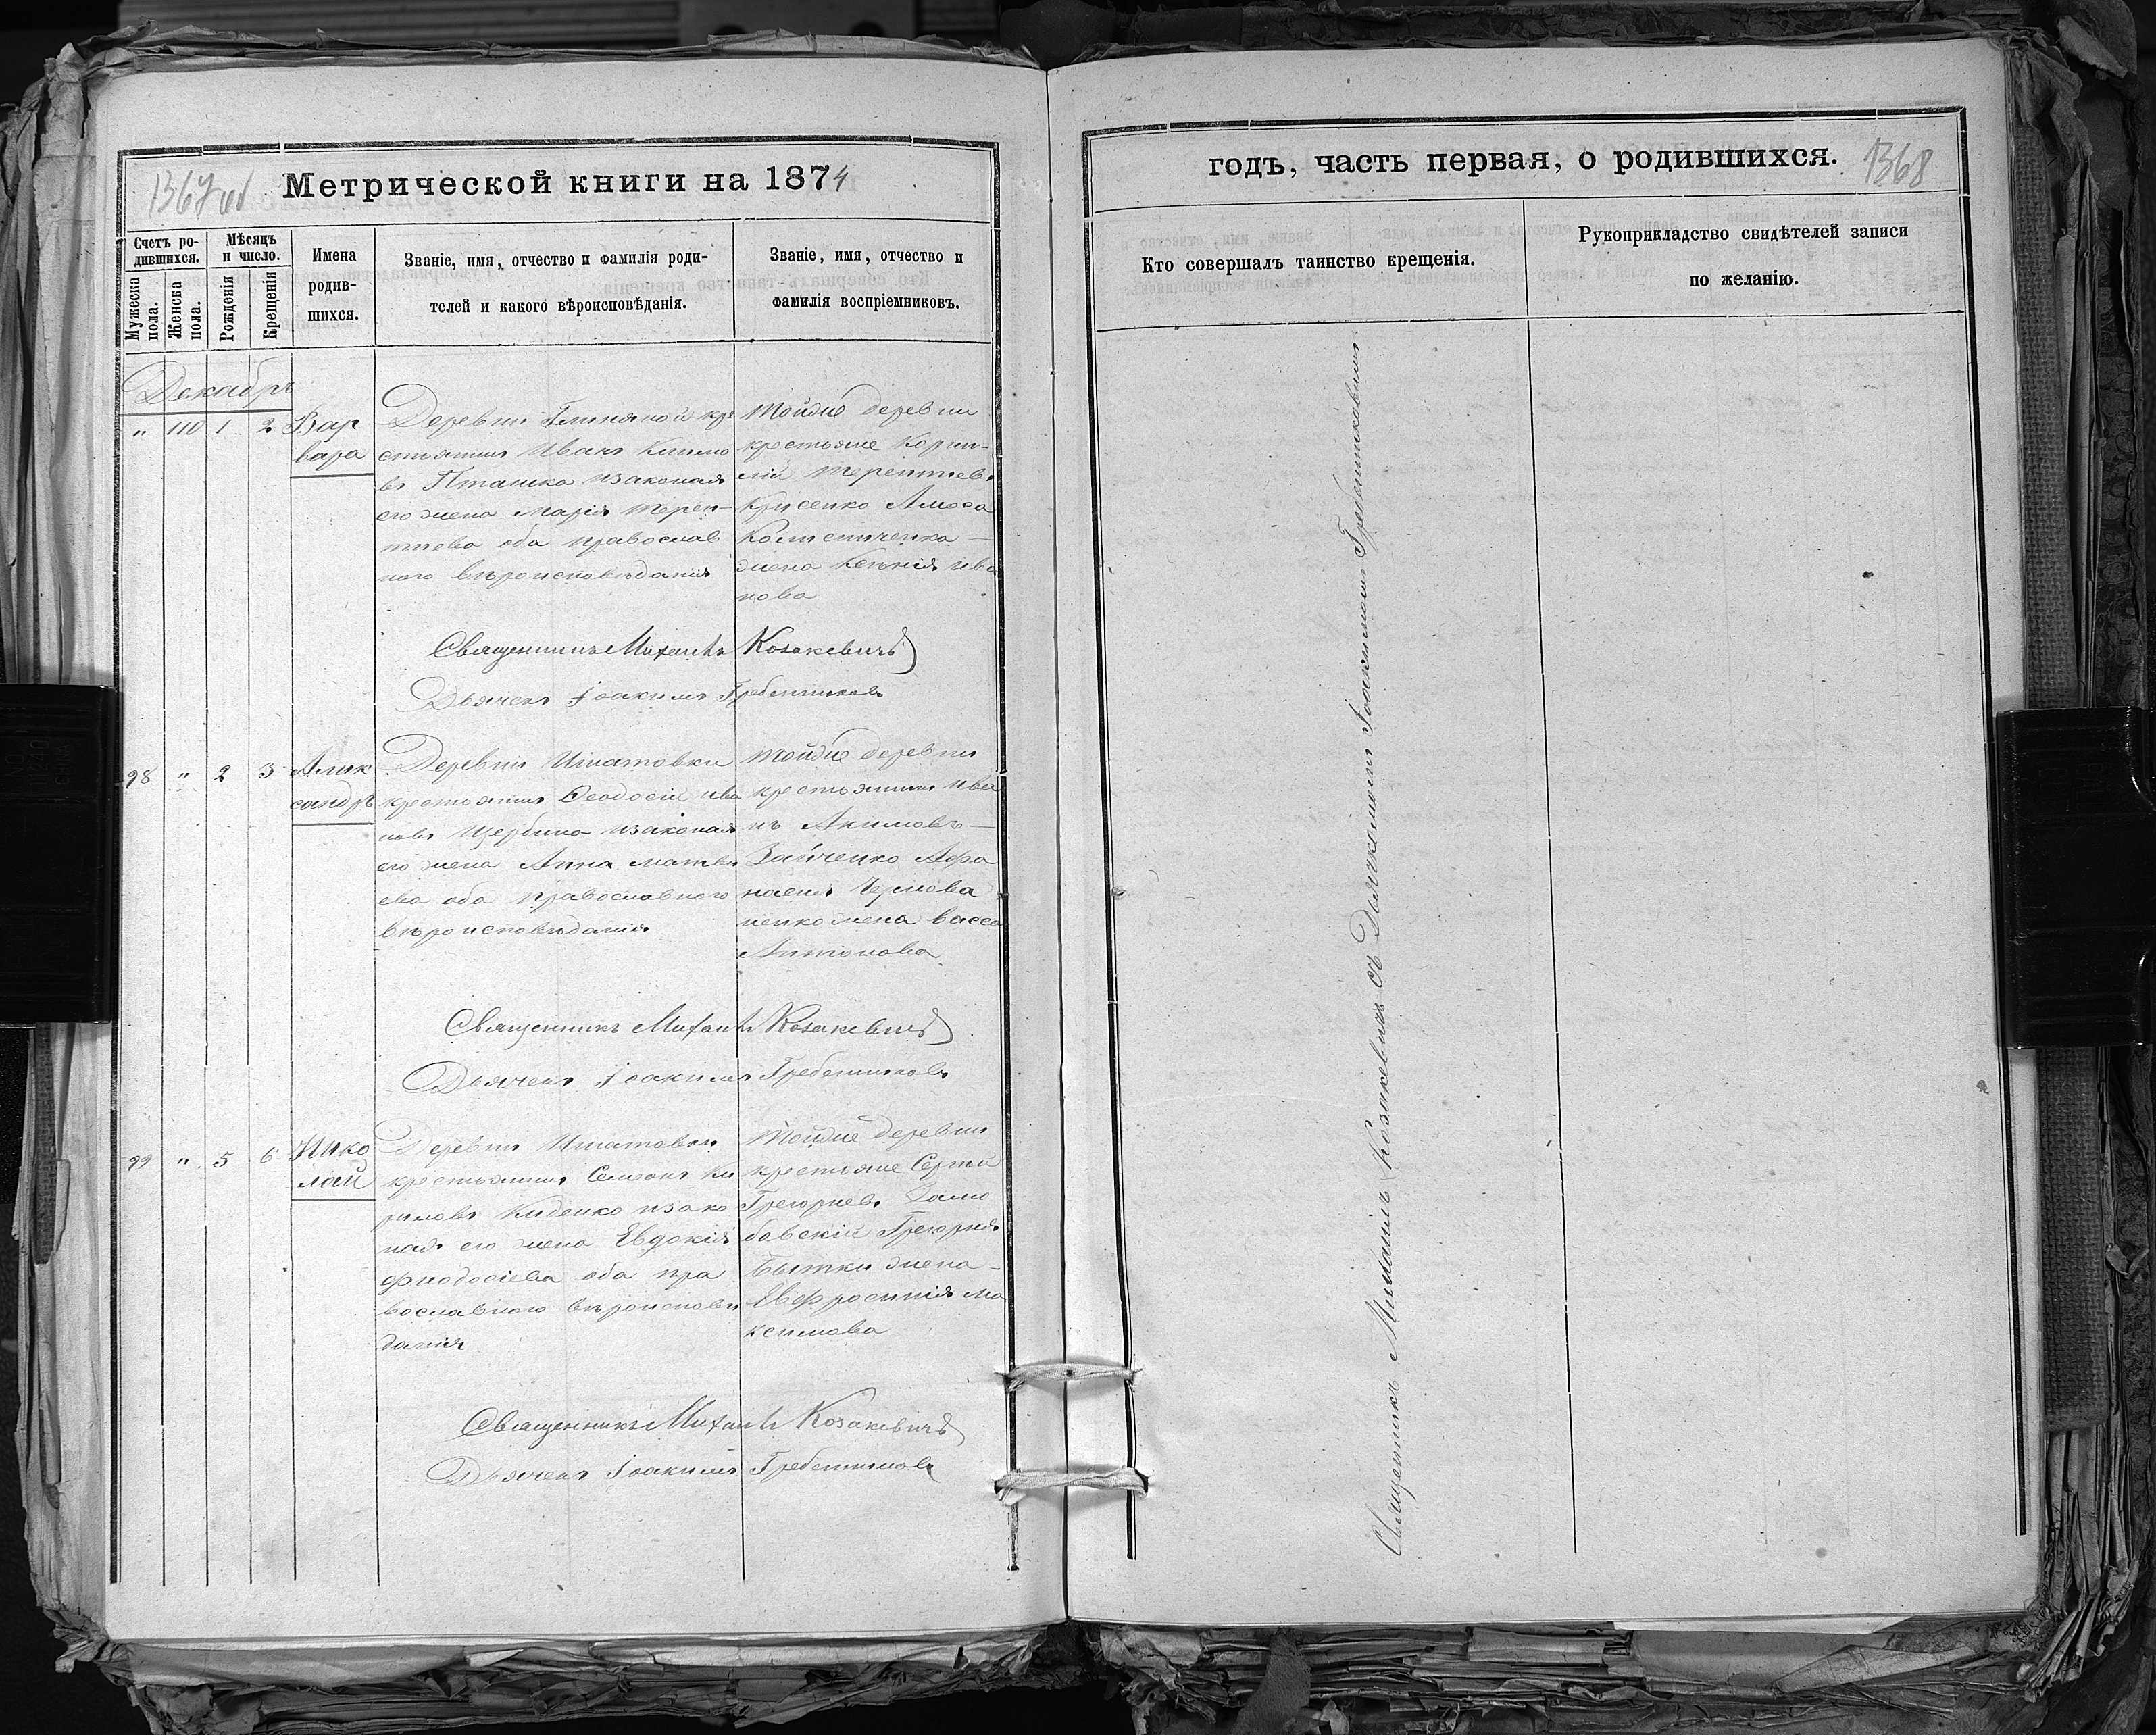 1367об
Метрической книги на 1874
Счетъ ро-
дившихся.
Мѣсяцъ
и число.
Мужеска
пола.
Женска
пола.
Рожденія
Крещенія
Имена
родив-
шихся.
Званіе, имя, отчество и фамилія роди-
телей и какого вѣроисповѣданія.
Званіе, имя, отчество и
фамилія воспріемниковъ.
Декабрь
„ 110 1 2
Вар
вара
Деревни Глиняной кре
стьянинъ Иванъ Климо
въ Пташка изаконая
его жена Марія Терен-
тиева оба православ
ного вѣроисповѣданія
Тойже деревни
крестьяне Корни-
лій Терентиевъ
Крисенко Амоса
жена Ксенія Ива
нова
Священникъ Михаилъ Козакевичъ
Дьячекъ Іоакимъ Гребенниковъ
98 „ 2 3
Алек
сандръ
Деревни Игнатовки
крестьянинъ Феодосій Ива
новъ Щербина изаконая
его жена Анна Матвѣ
ева оба православного
вѣроисповѣданія
Тойже деревни
крестьянинъ Ива
нъ Акимовъ
Зайченко Афа
насия
ненко жена Васса
Антонова
Священникъ Михаилъ Козакевичъ
Дьячекъ Іоакимъ Гребенниковъ
99 „ 5 6
Нико
лай
Деревни Игнатовки
крестьянинъ Семенъ Ки
риловъ изако
ная его жена Евдокія
Фиодосіева оба пра
вославного вѣроисповѣ
данія
Тойже деревни
крестьяне Сергѣй
Григориевъ
Григория
жена
Евфросинія Ма
ксимова
Священникъ Михаилъ Козакевичъ
Дьячекъ Іоакимъ Гребенниковъ
годъ, часть первая, о родившихся.
1368
Кто совершалъ таинство крещенія.
Рукоприкладство свидѣтелей записи
по желанію.
Священникъ Михаилъ Козакевичъ съ Дьячкомъ Іоакимомъ Гребенниковымъ